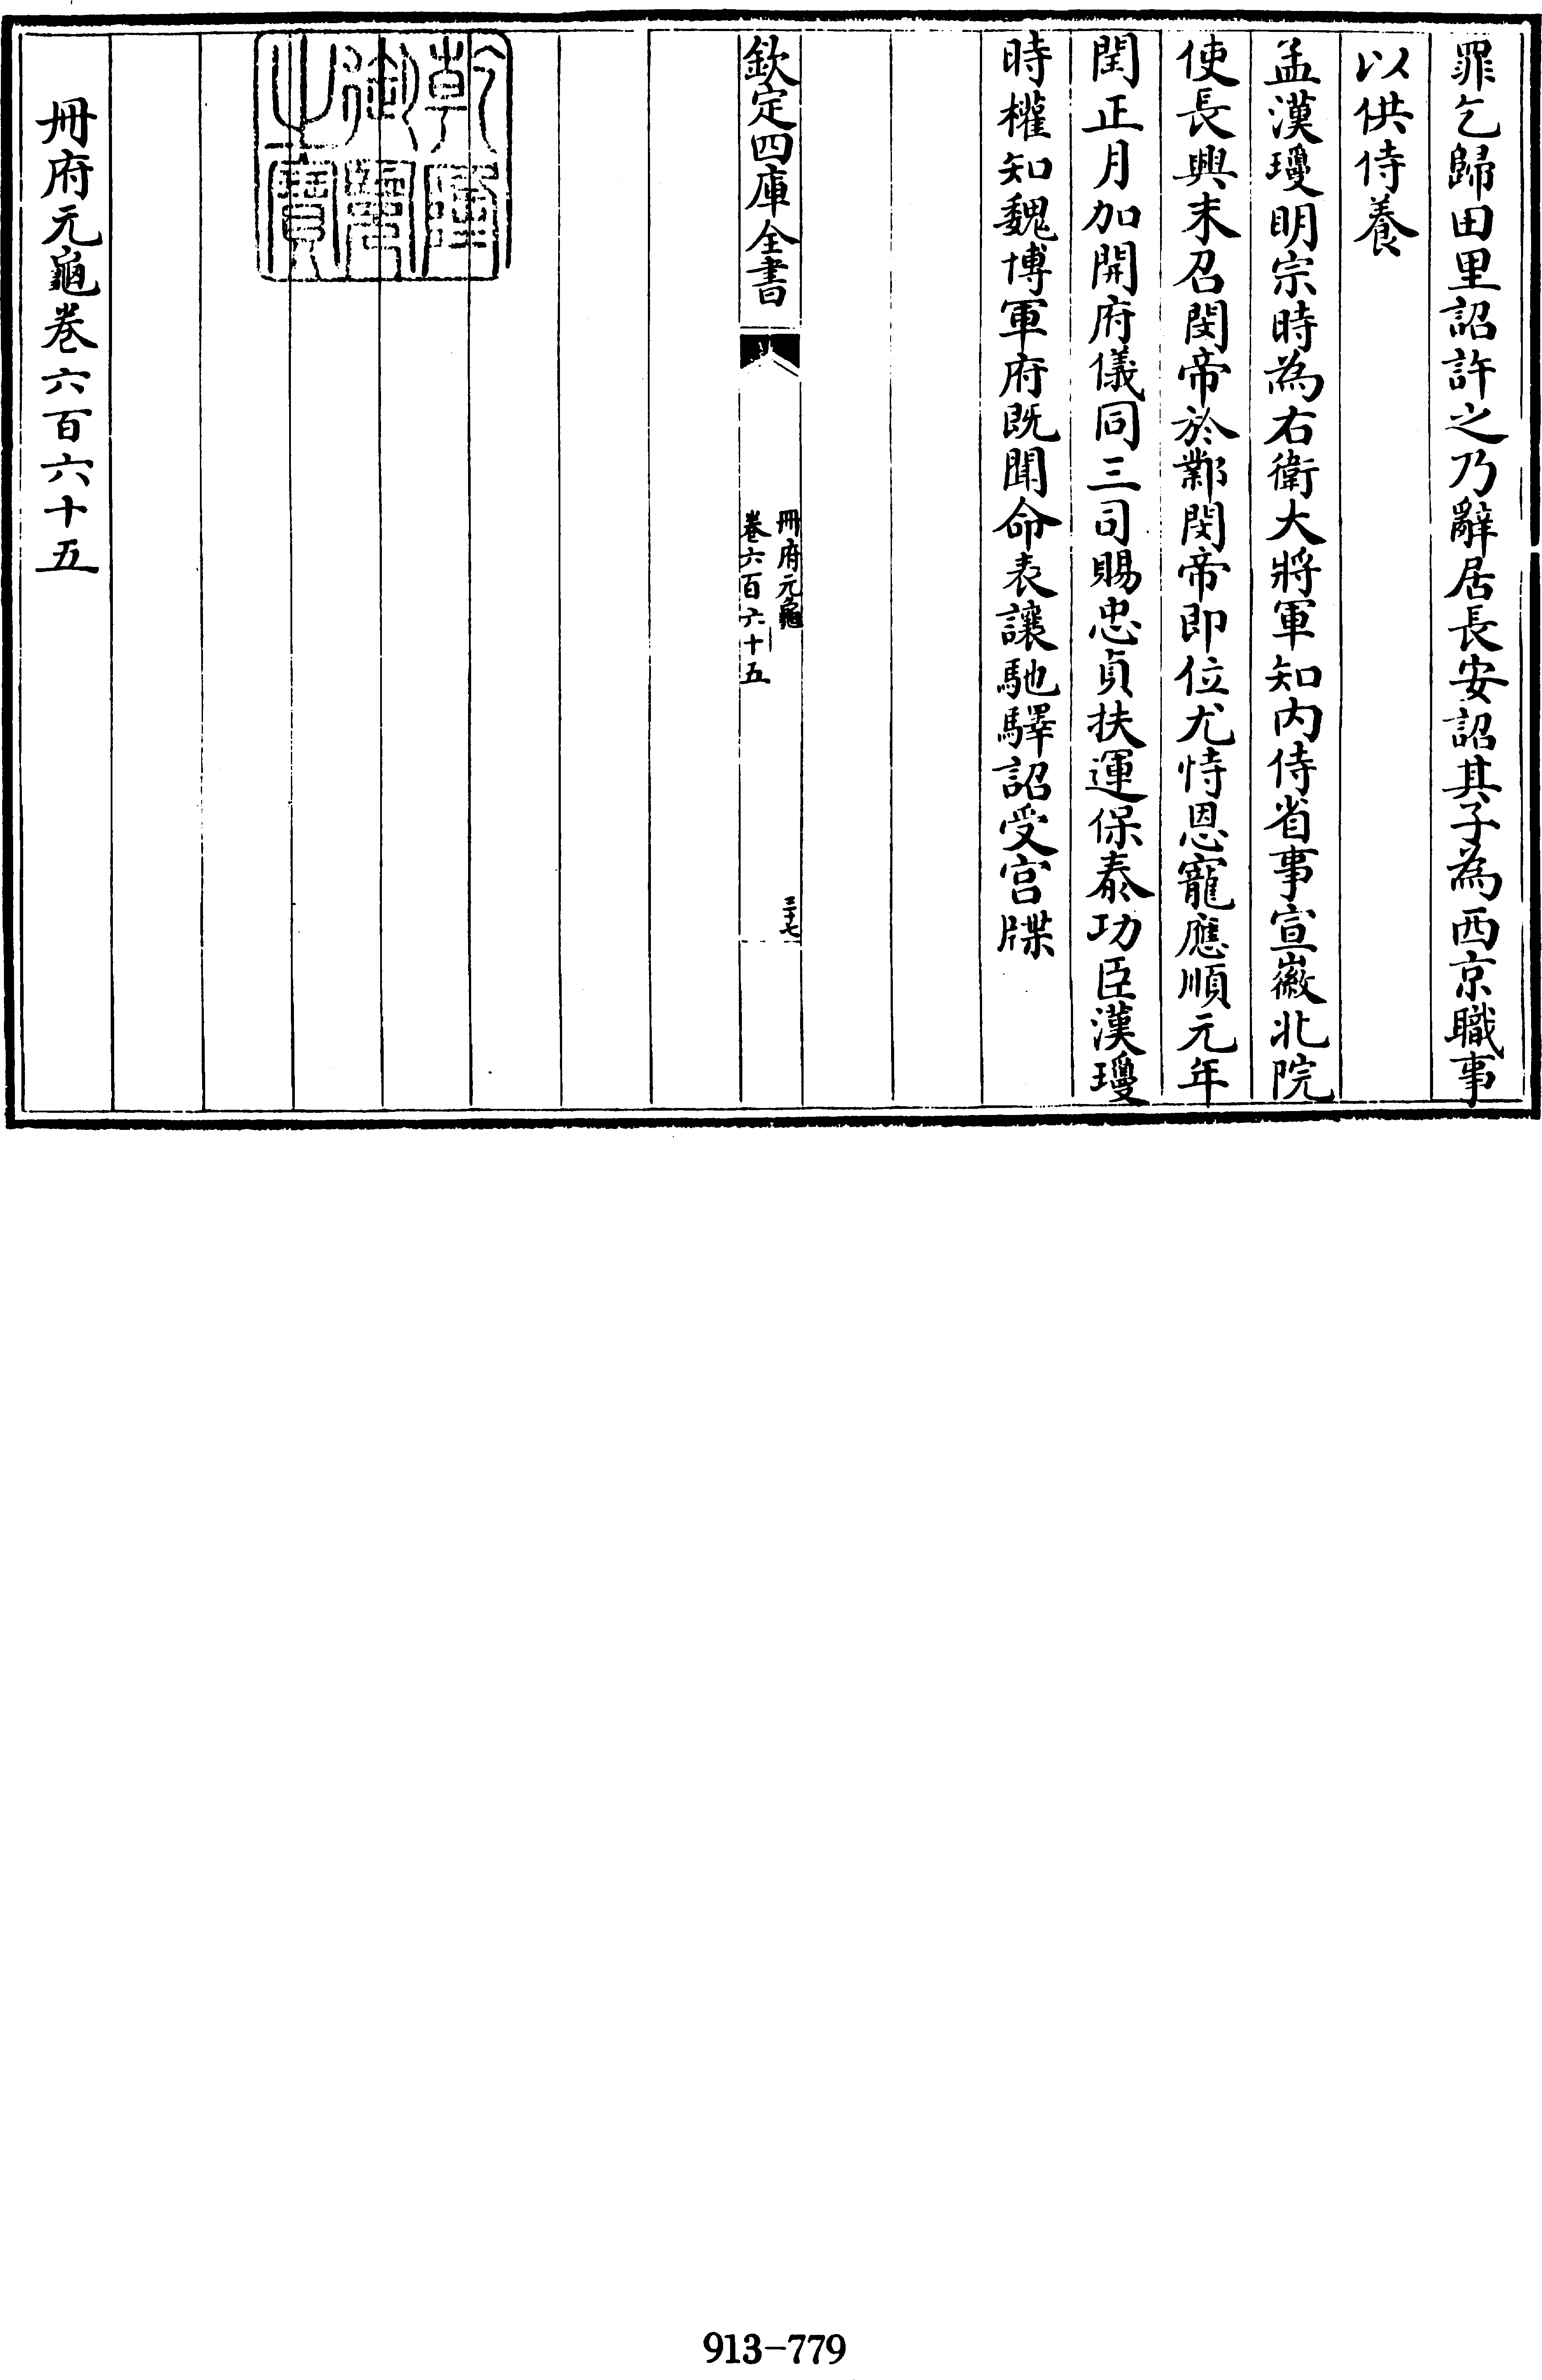 罪乞歸田里詔許之乃辭居長安詔其子為西京職事
以供侍養
孟漢瓊明宗時為右衛大將軍知内侍省事宣徽北院
使長興末召閔帝於鄴閔帝即位尤恃恩寵應順元年
閏正月加開府儀同三司賜忠貞扶運保泰功臣漢瓊
時權知魏博軍府既聞命表讓馳驛詔受官牒
欽定四庫全書
冊府元龜
卷六百六十五
三十七
乾隆
御覽
之寶
冊府元龜卷六百六十五
913-779